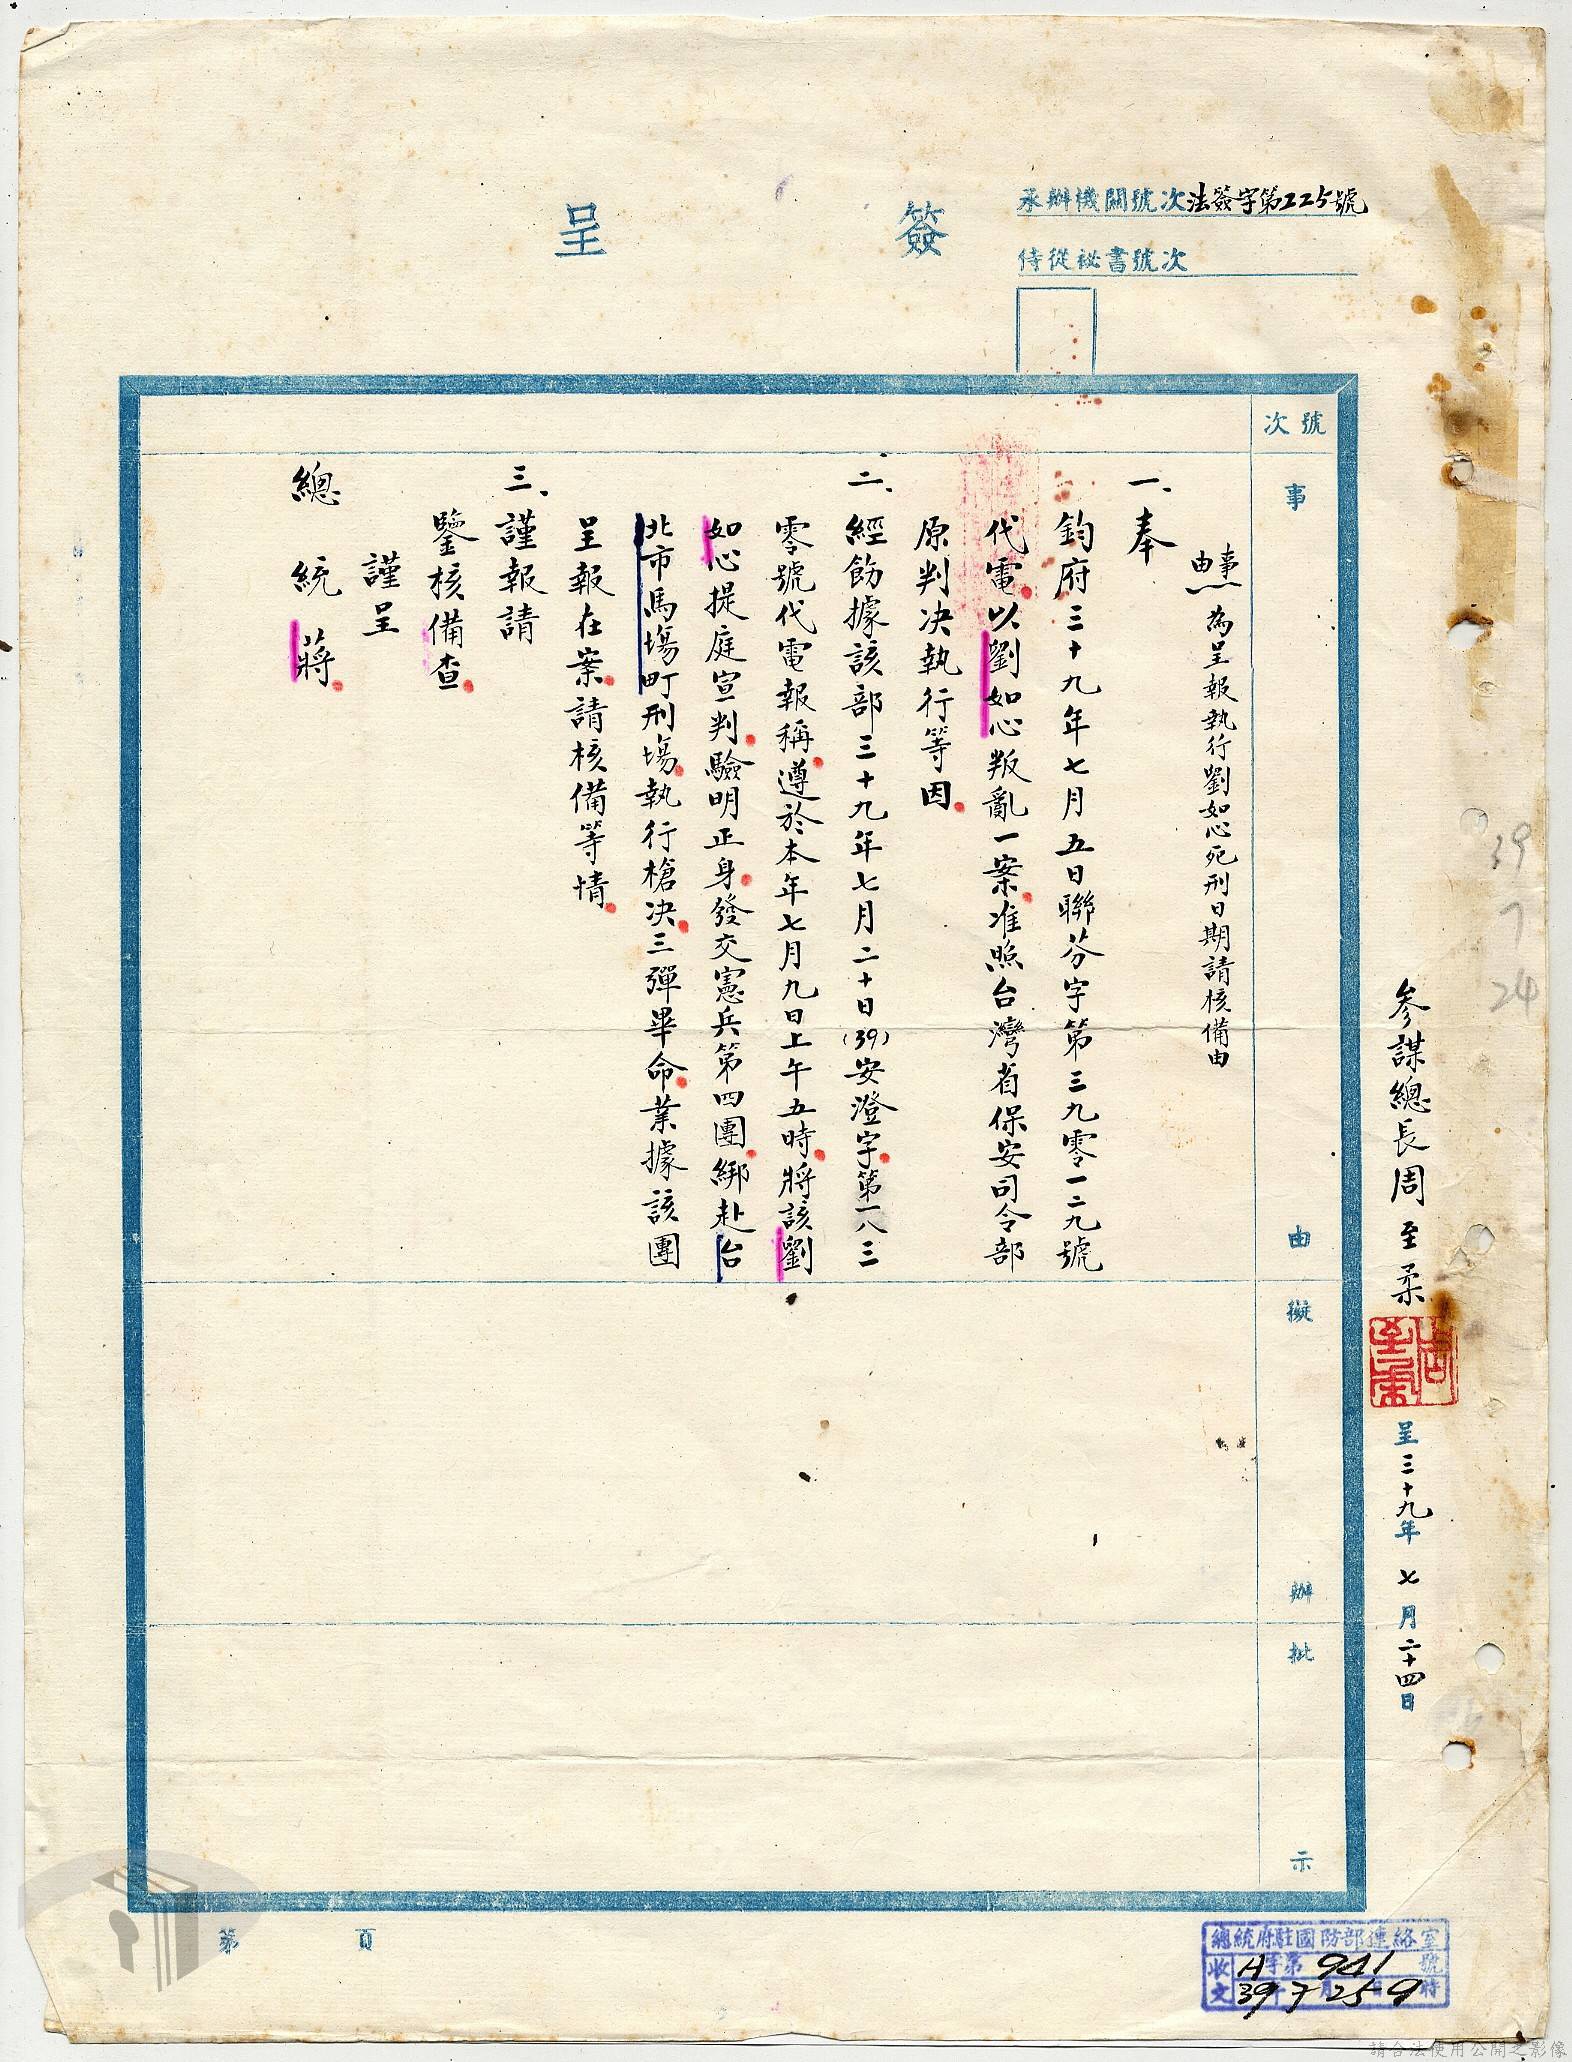 簽呈
承辦機關號次法簽字第225號
侍從祕書號次
參謀總長周至柔
周至柔
呈三十九年七月二十四日
39
7
24
號次
事由
擬辦
批示
事由為呈報執行劉如心死刑日期請核備由
一、奉
鈞府三十九年七月五日聯芬字第三九零一二九號
代電以劉如心叛亂一案准照台灣省保安司令部
原判決執行等因
二、經飭據該部三十九年七月二十日(39)安澄字第一八三
零號代電報稱遵於本年七月九日上午五時將該劉
如心提庭宣判驗明正身發交憲兵第四團綁赴台
北市馬場町刑場執行槍決三彈畢命業據該團
呈報在案請核備等情
三、謹報請
鑒核備查
謹呈
總統蔣
第 頁
總統府駐國防部連絡室
收文 字第941號
39 7月25日9時
請合法使用公開之影像